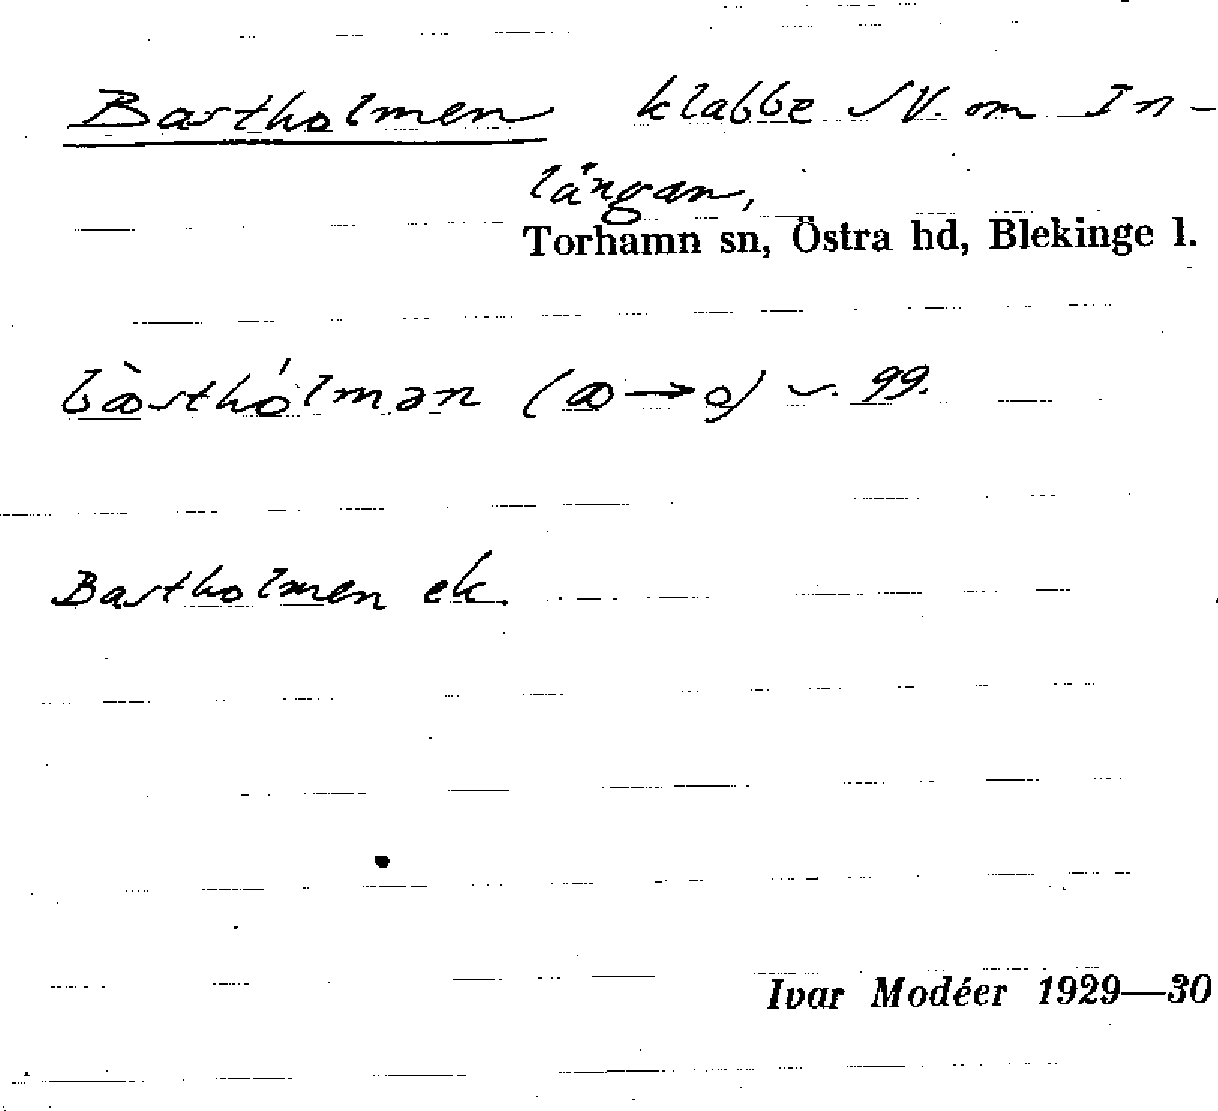 Bastholmen klabbe SV. om In-
längan,
Torhamn sn, Östra hd, Blekinge l.
Bastholmen ek.
Ivar Modéer 1929—30